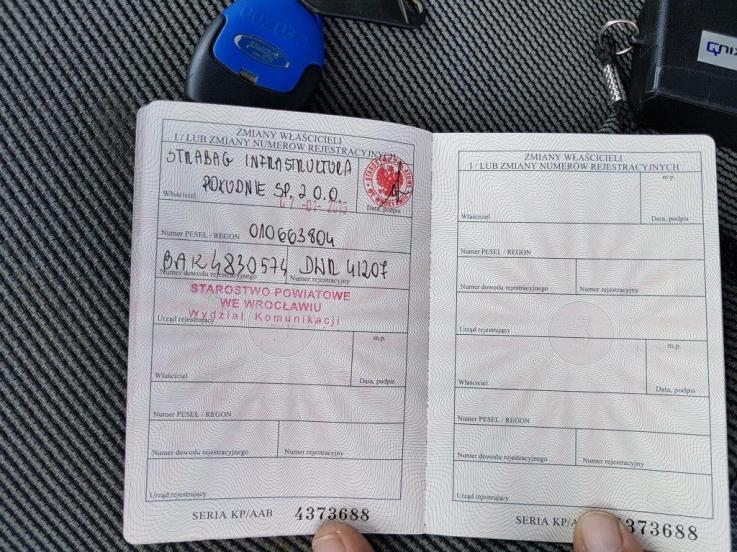 Ford
Qnix
ZMIANY WŁAŚCICIELI
I / LUB ZMIANY NUMERÓW REJESTRACYJNYCH
STRABAG INFRASTRUKTURA
POŁUDNIE SP. Z O.O.
Właściciel
Data, podpis
Numer PESEL / REGON 010663804
BAK4830574 DWR 41207
Numer dowodu rejestracyjnego Numer rejestracyjny
STAROSTWO POWIATOWE
WE WROCŁAWIU
Wydział Komunikacji
Urząd rejestrujący
m.p.
Właściciel Data, podpis
Numer PESEL / REGON
Numer dowodu rejestracyjnego Numer rejestracyjny
Urząd rejestrujący
SERIA KP/AAB 4373688
ZMIANY WŁAŚCICIELI
I / LUB ZMIANY NUMERÓW REJESTRACYJNYCH
m.p.
Właściciel Data, podpis
Numer PESEL / REGON
Numer dowodu rejestracyjnego Numer rejestracyjny
Urząd rejestrujący
m.p.
Właściciel Data, podpis
Numer PESEL / REGON
Numer dowodu rejestracyjnego Numer rejestracyjny
Urząd rejestrujący
SERIA KP/A 373688